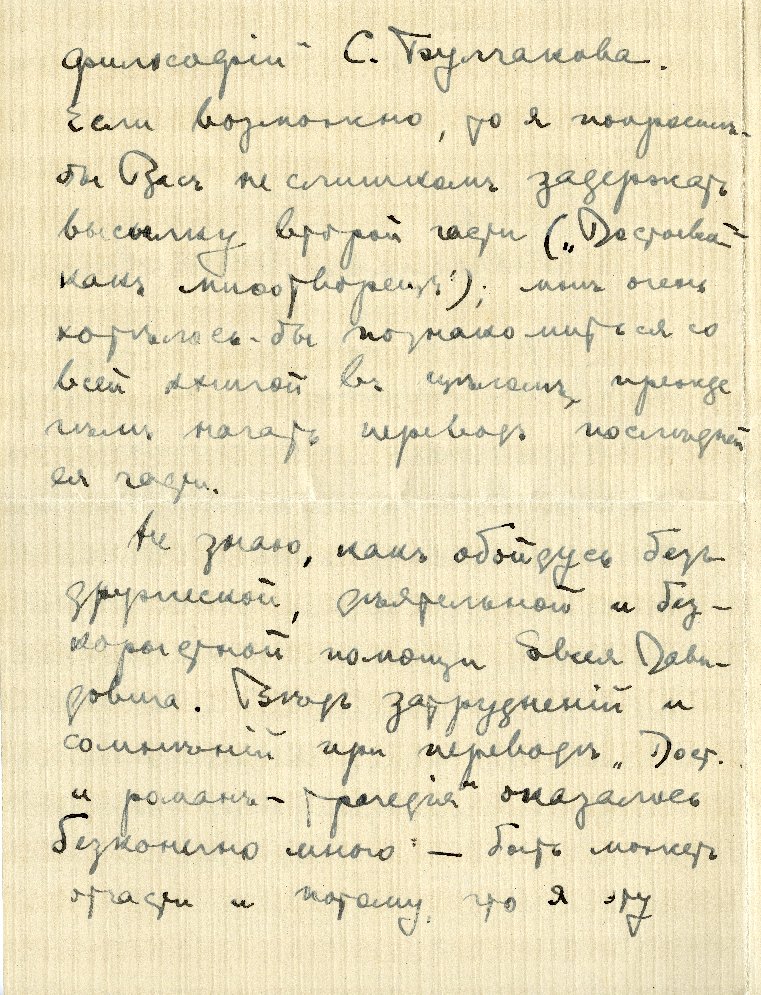 философіи" С. Булгакова.
Если возможно, то я попросилъ-
бы Васъ не слишкомъ задержать
высылку второй части („Достоевскій
какъ миѳотворецъ"); мнѣ очень
хотѣлось-бы познакомиться со
всей книгой въ цѣломъ, прежде
чѣмъ начать переводъ послѣдней
ея части.
Не знаю, какъ обойдусь безъ
дружеской, дѣятельной и без-
корыстной помощи Евсея Давы-
довича. Вѣдь затрудненій и
сомнѣній при переводѣ „Дост.
и романъ-трагедія" оказалось
безконечно много — быть можетъ
отчасти и потому, что я эту